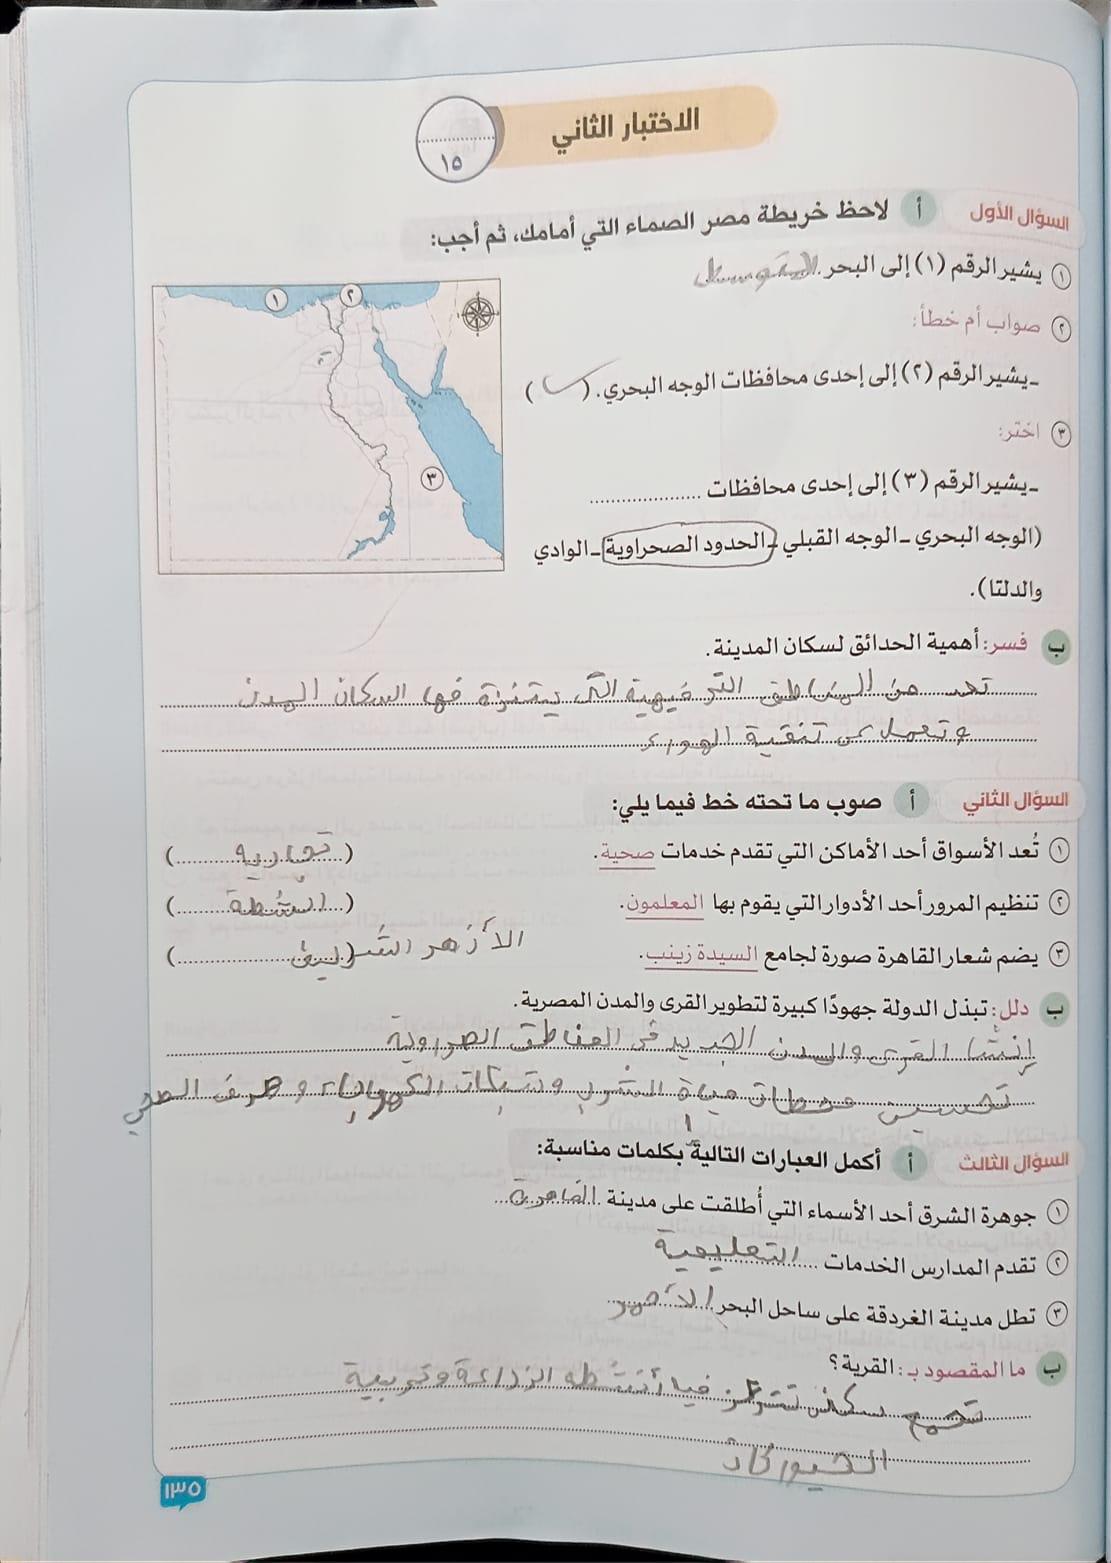 الاختبار الثاني
١٥
السؤال الأول أ لاحظ خريطة مصر الصماء التي أمامك، ثم أجب:
١ يشير الرقم (١) إلى البحر المتوسط
٢ صواب أم خطأ:
ـ يشير الرقم (٢) إلى إحدى محافظات الوجه البحري. (✓)
٣ اختر:
ـ يشير الرقم (٣) إلى إحدى محافظات ....................
(الوجه البحري ـ الوجه القبلي ـ الحدود الصحراوية ـ الوادي
والدلتا).
١
٢
٣
ب فسر: أهمية الحدائق لسكان المدينة.
تعد من المناطق الترفيهية التى يتنزة فيها السكان المدن
وتعمل على تنقية الهواء
السؤال الثاني أ صوب ما تحته خط فيما يلي:
١ تُعد الأسواق أحد الأماكن التي تقدم خدمات صحية. (تجارية)
٢ تنظيم المرور أحد الأدوار التي يقوم بها المعلمون. (الشرطة)
٣ يضم شعار القاهرة صورة لجامع السيدة زينب. (الأزهر الشريف)
ب دلل: تبذل الدولة جهودًا كبيرة لتطوير القرى والمدن المصرية.
إنشا القرى والمدن الجديد فى المناطق الصحروية
تحسين محطات مياة الشرب وشبكات الكهرباء وصرف الصحي
السؤال الثالث أ أكمل العبارات التالية بكلمات مناسبة:
١ جوهرة الشرق أحد الأسماء التي أُطلقت على مدينة القاهرة
٢ تقدم المدارس الخدمات التعليمية
٣ تطل مدينة الغردقة على ساحل البحر الأحمر
ب ما المقصود بـ: القرية؟
تجمع سكانى فيا أنشطه الزراعة وتربية
الحيونات
١٣٥